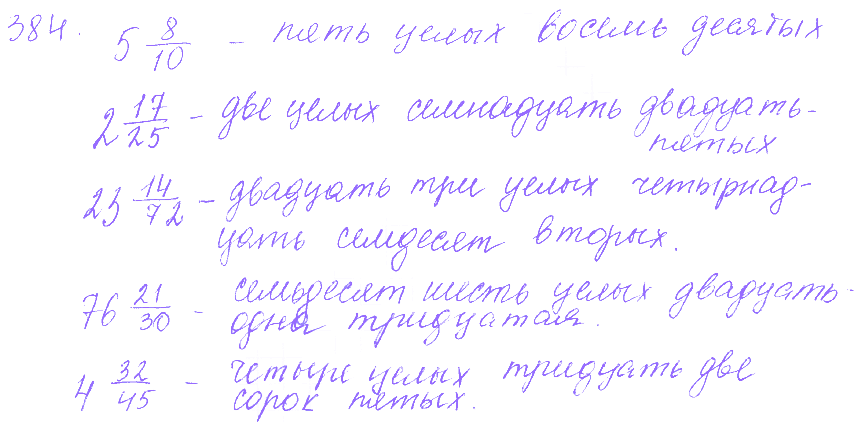 384. 5 8/10 – пять целых восемь десятых
2 17/25 – две целых семнадцать двадцать-
пятых
23 14/72 – двадцать три целых четырнад-
цать семдесят вторых.
76 21/30 - семьдесят шесть целых двадцать-
одна тридцатая.
4 32/45 - четыре целых тридцать две
сорок пятых.